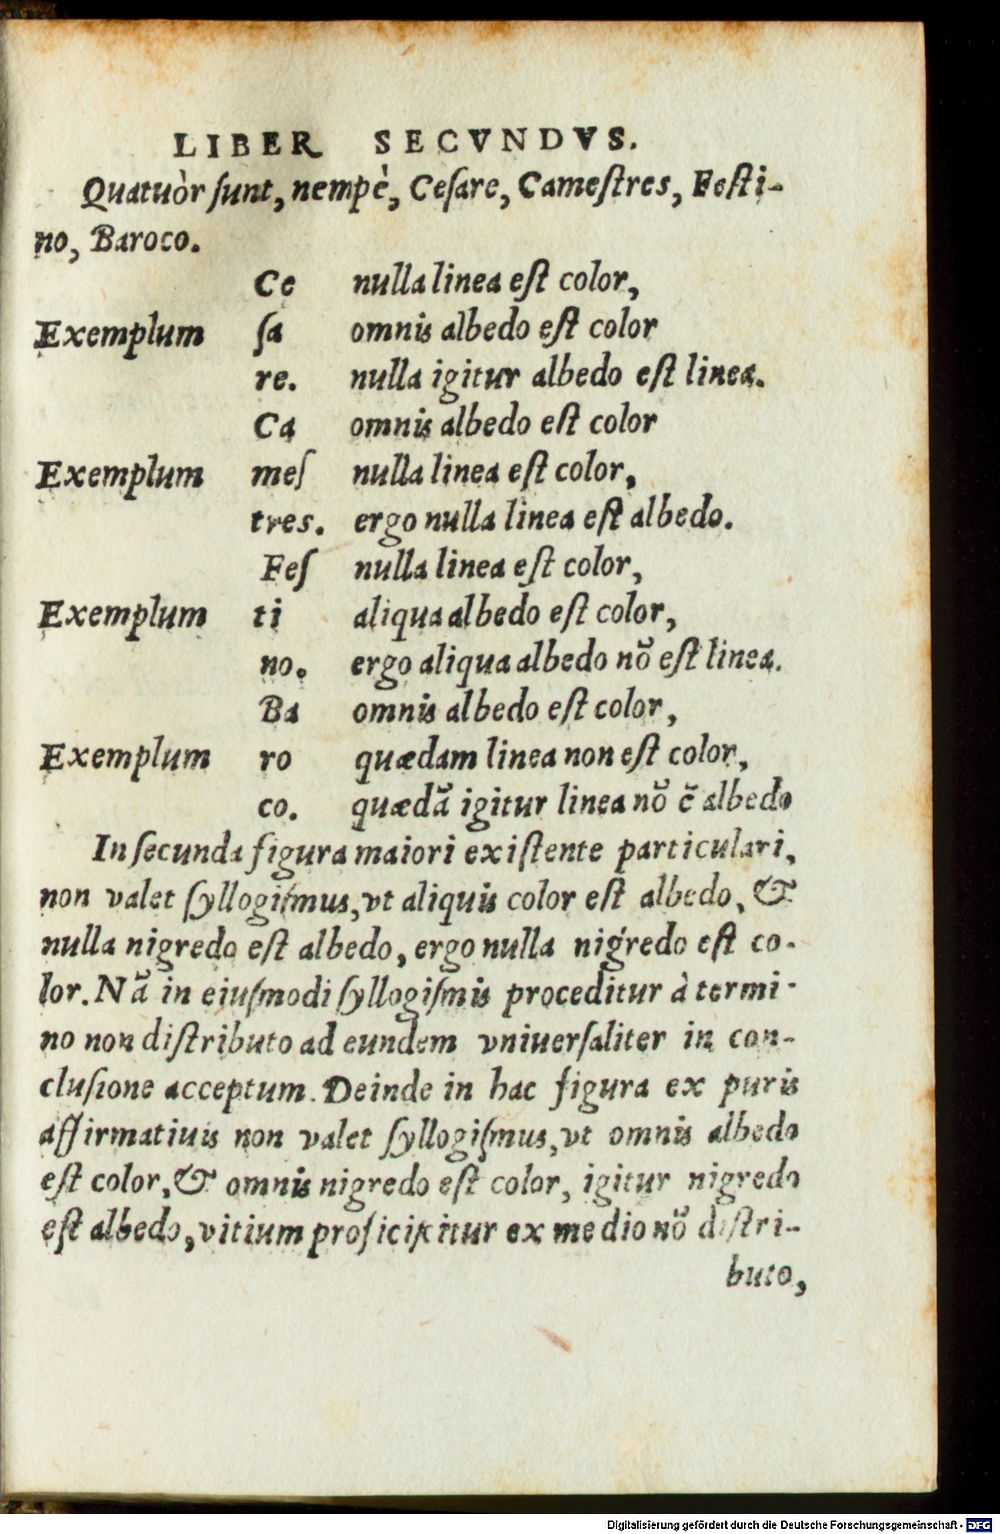 LIBER SECVNDVS.
Quatuòr ſunt, nempè, Ceſare, Cameſtres, Feſti-
no, Baroco.
Ce nulla linea eſt color,
Exemplum ſa omnis albedo eſt color
re. nulla igitur albedo eſt linea.
Ca omnis albedo eſt color
Exemplum meſ nulla linea eſt color,
tres. ergo nulla linea eſt albedo.
Feſ nulla linea eſt color,
Exemplum ti aliqua albedo eſt color,
no. ergo aliqua albedo nõ eſt linea.
Ba omnis albedo eſt color,
Exemplum ro quædam linea non eſt color,
co. quædã igitur linea nõ ẽ albedo
In ſecunda figura maiori exiſtente particulari,
non valet ſyllogiſmus, vt aliquis color eſt albedo, &
nulla nigredo eſt albedo, ergo nulla nigredo eſt co-
lor. Nã in eiuſmodi ſyllogiſmis proceditur à termi-
no non diſtributo ad eundem vniuerſaliter in con-
cluſione acceptum. Deinde in hac figura ex puris
affirmatiuis non valet ſyllogiſmus, vt omnis albedo
eſt color, & omnis nigredo eſt color, igitur nigredo
eſt albedo, vitium proficiſcitur ex medio nõ diſtri-
buto,
Digitalisierung gefördert durch die Deutsche Forschungsgemeinschaft - DFG